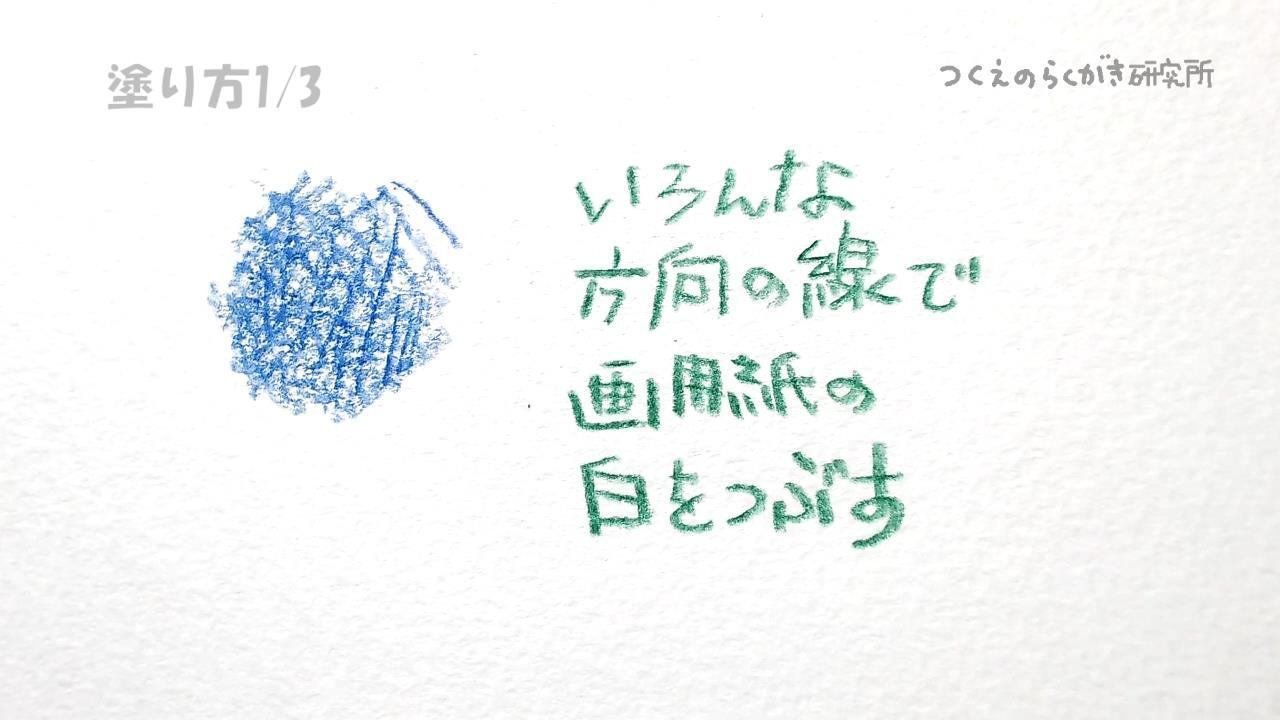 塗り方1/3
つくえのらくがき研究所
いろんな
方向の線で
画用紙の
白をつぶす